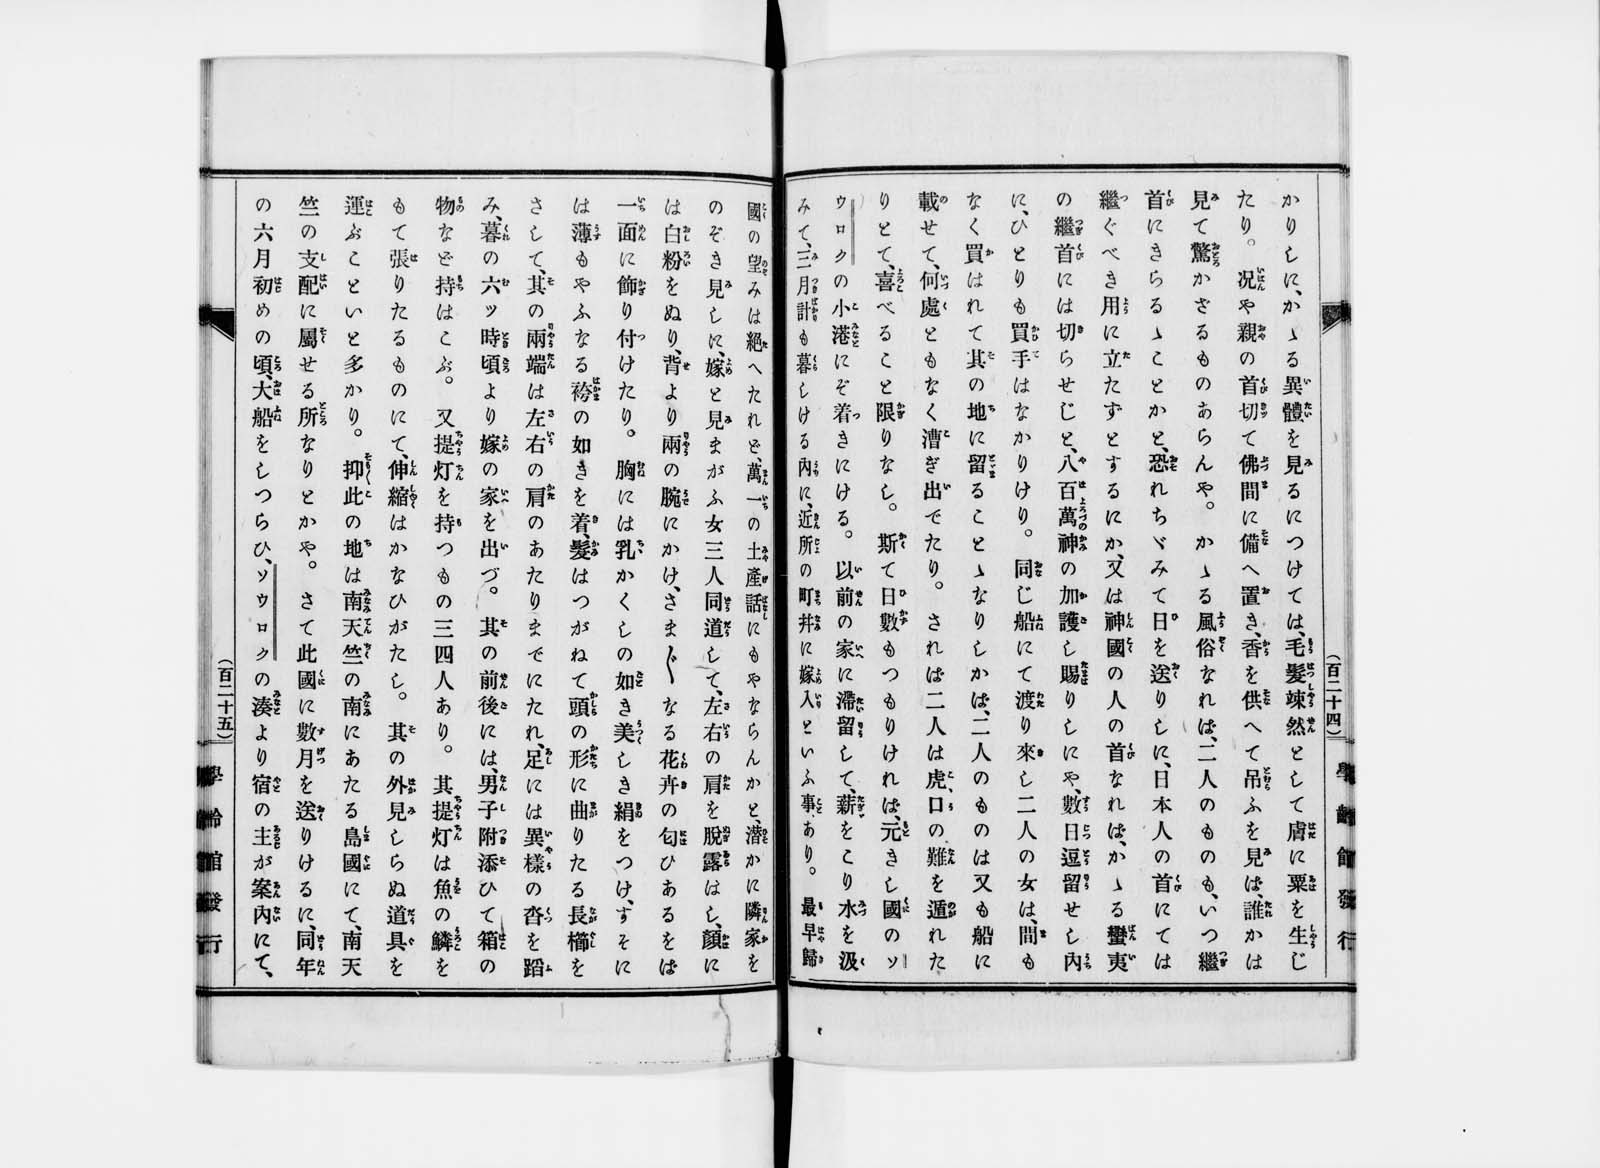 かりしに、かゝる異體を見るにつけては、毛髮竦然として膚に粟を生じ
たり。況や親の首切て佛間に備へ置き、香を供へて吊ふを見ば誰かは
見て驚かざるものあらんや。かゝる風俗なれば、二人のものも、いつ繼
首にきらるゝことかと、恐れちゞみて日を送りしに、日本人の首にては
繼ぐべき用に立たずとするにか、又は神國の人の首なれば、かゝる蠻夷
の繼首には切らせじと、八百萬神の加護し賜りしにや、數日逗留せし內
に、ひとりも買手はなかりけり。同じ船にて渡り來し二人の女は、間も
なく買はれて其の地に留ることゝなりしかば、二人のものは又も船に
載せて、何處ともなく漕ぎ出でたり。されば二人は虎口の難を遁れた
りとて、喜べること限りなし。斯て日數もつもりければ、元きし國のソ
ウロクの小港にぞ着きにける。以前の家に滯留して、薪をこり水を汲
みて、三月計も暮しける內に、近所の町井に嫁入といふ事あり。最早歸
(百二十四)
學齡館發行
國の望みは絕へたれど、萬一の土產話にもやならんかと、潜かに隣家を
のぞき見しに、嫁と見まがふ女三人同道して、左右の肩を脫露はし、顏に
は白粉をぬり、背より兩の腕にかけ、さま〴〵なる花卉の匂ひあるをば
一面に飾り付けたり。胸には乳かくしの如き美しき絹をつけ、すそに
は薄もやふなる袴の如きを着、髮はつがねて頭の形に曲りたる長櫛を
さして、其の兩端は左右の肩のあたりまでにたれ、足には異樣の沓を蹈
み、暮の六ッ時頃より嫁の家を出づ。其の前後には、男子附添ひて箱の
物など持はこぶ。又提灯を持つもの三四人あり。其提灯は魚の鱗を
もて張りたるものにて、伸縮はかなひがたし。其の外見しらぬ道具を
運ぶこといと多かり。抑此の地は南天竺の南にあたる島國にて、南天
竺の支配に屬せる所なりとかや。さて此國に數月を送りけるに、同年
の六月初めの頃、大船をしつらひ、ソウロクの湊より宿の主が案內にて、
(百二十五)
學齡館發行